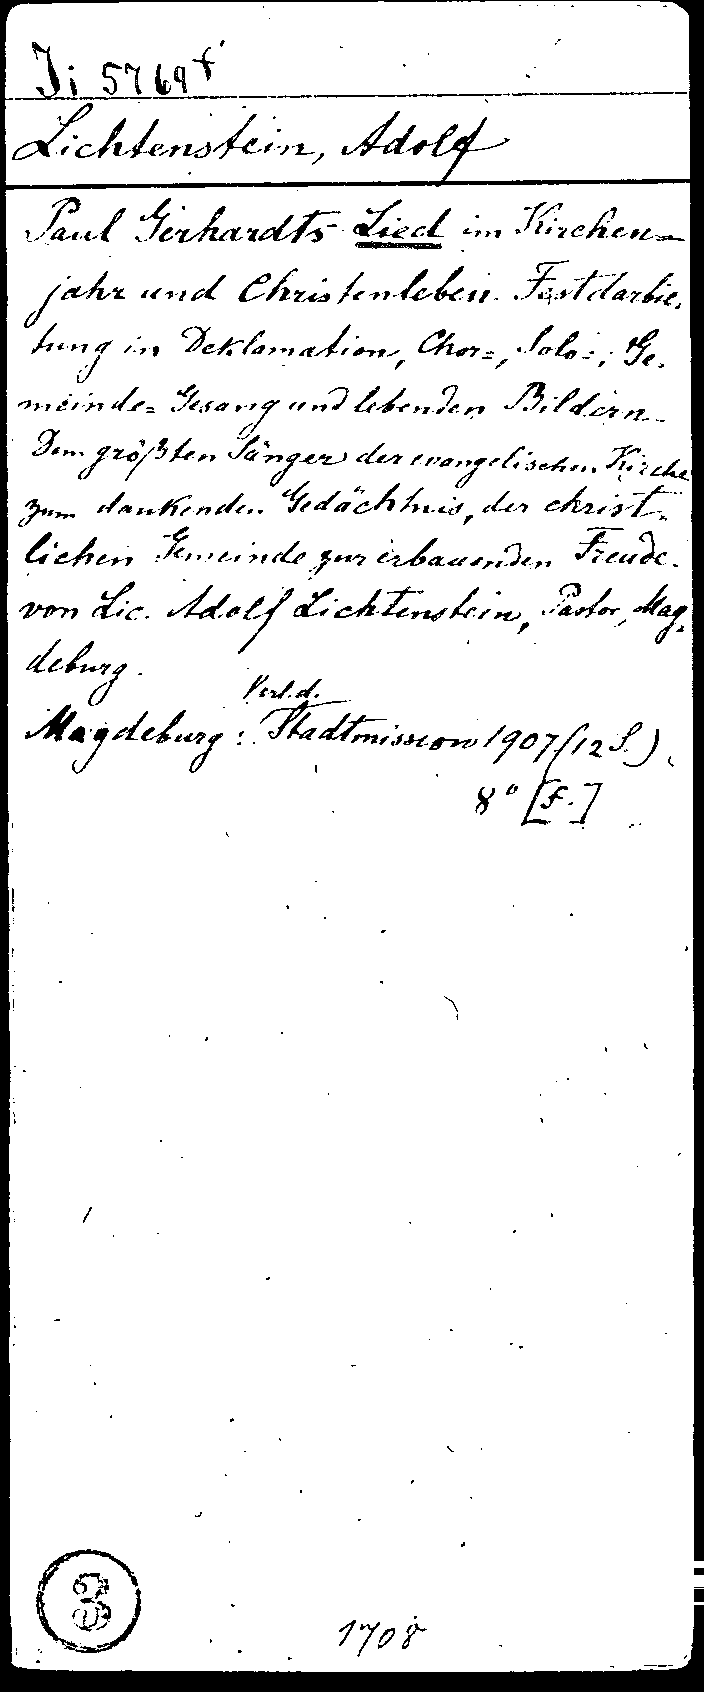 Ji 5769 f
Lichtenstein, Adolf
Paul Gerhardts Lied im Kirchen=
jahr und Christenleben. Festdarbie-
tung in Deklamation, Chor=, Solo=, Ge-
meinde= Gesang und lebenden Bildern
Dem größten Sänger der evangelischen Kirche
zum dankenden Gedächtnis, der christ-
lichen Gemeinde zur erbauenden Freude.
von Lic. Adolf Lichtenstein, Pastor, Mag-
deburg.
Magdeburg: Verl. d. Stadtmission 1907 (12 S.)
8° [F.]
3
1708